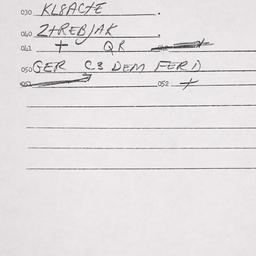 030 KLSACTE .
040 ZTREBJAK .
041 + QR
050 GER C3 DEM FERD
051 052 +